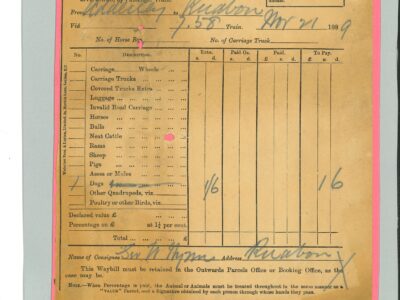 From to Ruabon
Via 7.58 Train. Nov 21 1889
No. of Horse Box No. of Carriage Truck
No. Description. Rate. Paid On. Paid. To Pay.
Carriage Wheels
Carriage Trucks
Covered Trucks Extra
Luggage
Invalid Road Carriage
Horses
Bulls
Neat Cattle
Rams
Sheep
Pigs
Asses or Mules
1 Dogs 1/6 1 6
Other Quadrupeds, viz
Poultry or other Birds, viz.
Declared value £
Percentage on £ at 1¼ per cent.
Total £
Name of Consignee Sir W Wynn Address Ruabon
This Waybill must be retained in the Outwards Parcels Office or Booking Office, as the
case may be.
NOTE.—When Percentage is paid, the Animal or Animals must be treated throughout in the same manner as a
"VALUE" Parcel, and a Signature obtained by each person through whose hands they pass.